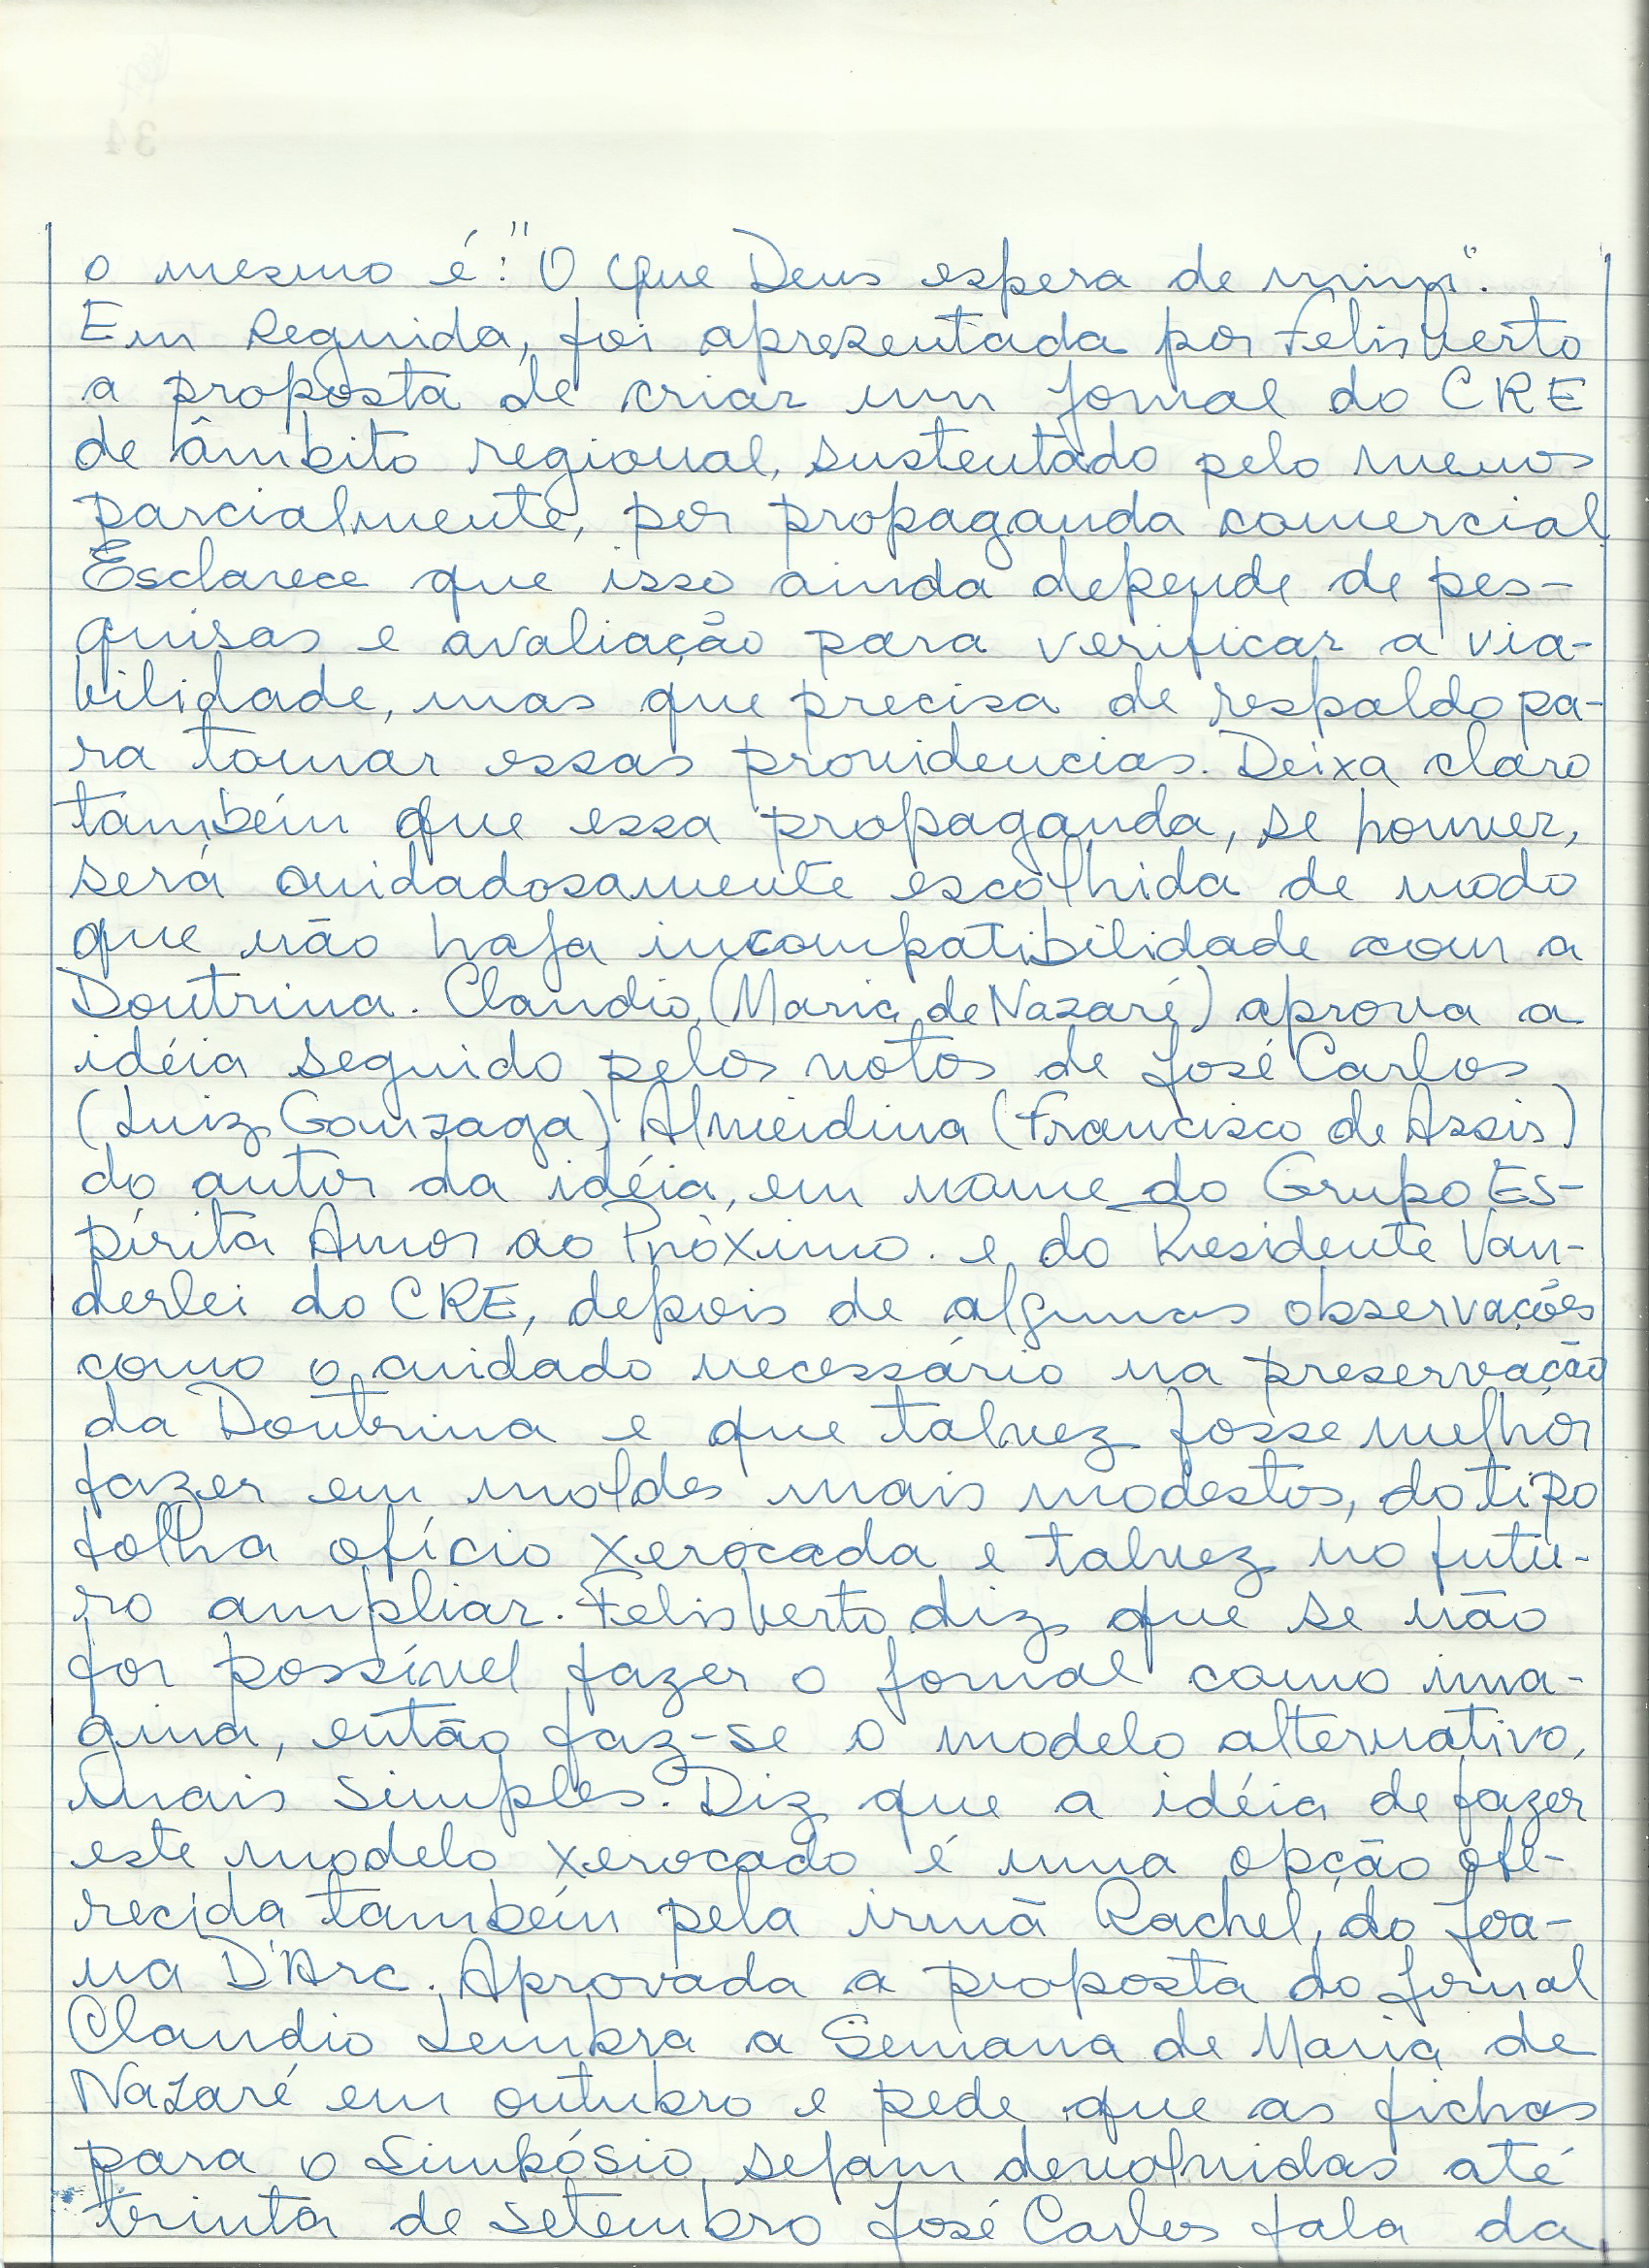 o mesmo é: "O que Deus espera de mim".
Em seguida, foi apresentada por Felisberto
a proposta de criar um jornal do CRE
de âmbito regional, sustentado pelo menos
parcialmente, por propaganda comercial.
Esclarece que isso ainda depende de pes-
quisas e avaliação para verificar a via-
bilidade, mas que precisa de respaldo pa-
ra tomar essas providencias. Deixa claro
também que essa propaganda, se houver,
será cuidadosamente escolhida de modo
que não haja incompatibilidade com a
Doutrina. Claudio (Maria de Nazaré) aprova a
idéia seguido pelos votos de José Carlos
(Luiz Gonzaga) Almeidina (Francisco de Assis)
do autor da idéia, em nome do Grupo Es-
pírita Amor ao Próximo. e do Presidente Van-
derlei do CRE, depois de algumas observações
como o cuidado necessário na preservação
da Doutrina e que talvez fosse melhor
fazer em moldes mais modestos, do tipo
folha ofício xerocada e talvez no futu-
ro ampliar. Felisberto diz que se não
for possível fazer o jornal como ima-
gina, então faz-se o modelo alternativo,
mais simples. Diz que a idéia de fazer
este modelo xerocado é uma opção ofe-
recida também pela irmã Rachel, do Joa-
na D'Arc. Aprovada a proposta do jornal
Claudio lembra a Semana de Maria de
Nazaré em outubro e pede que as fichas
para o Simpósio, sejam devolvidas até
trinta de setembro José Carlos fala da